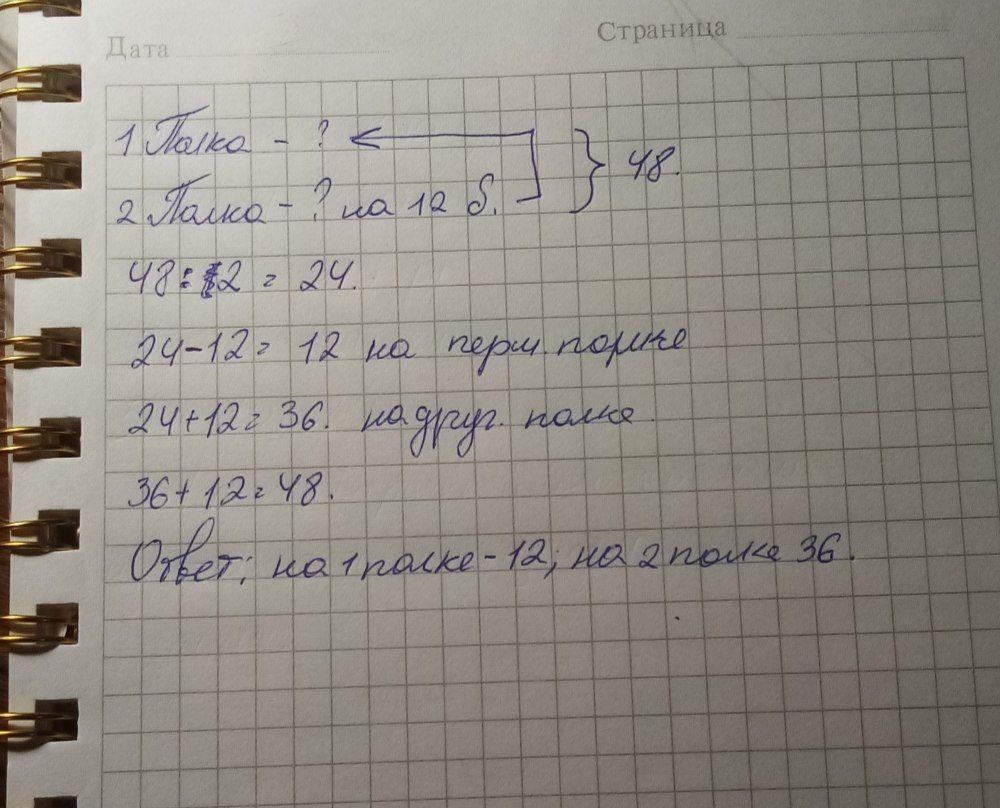 Дата
Страница
1 Полка - ?
2 Полка - ? на 12 б. } 48.
48:2 = 24.
24-12= 12 на перм. помке
24+12= 36. на друг. полке
36+12=48.
Ответ: на 1 полке - 12; на 2 полке 36.